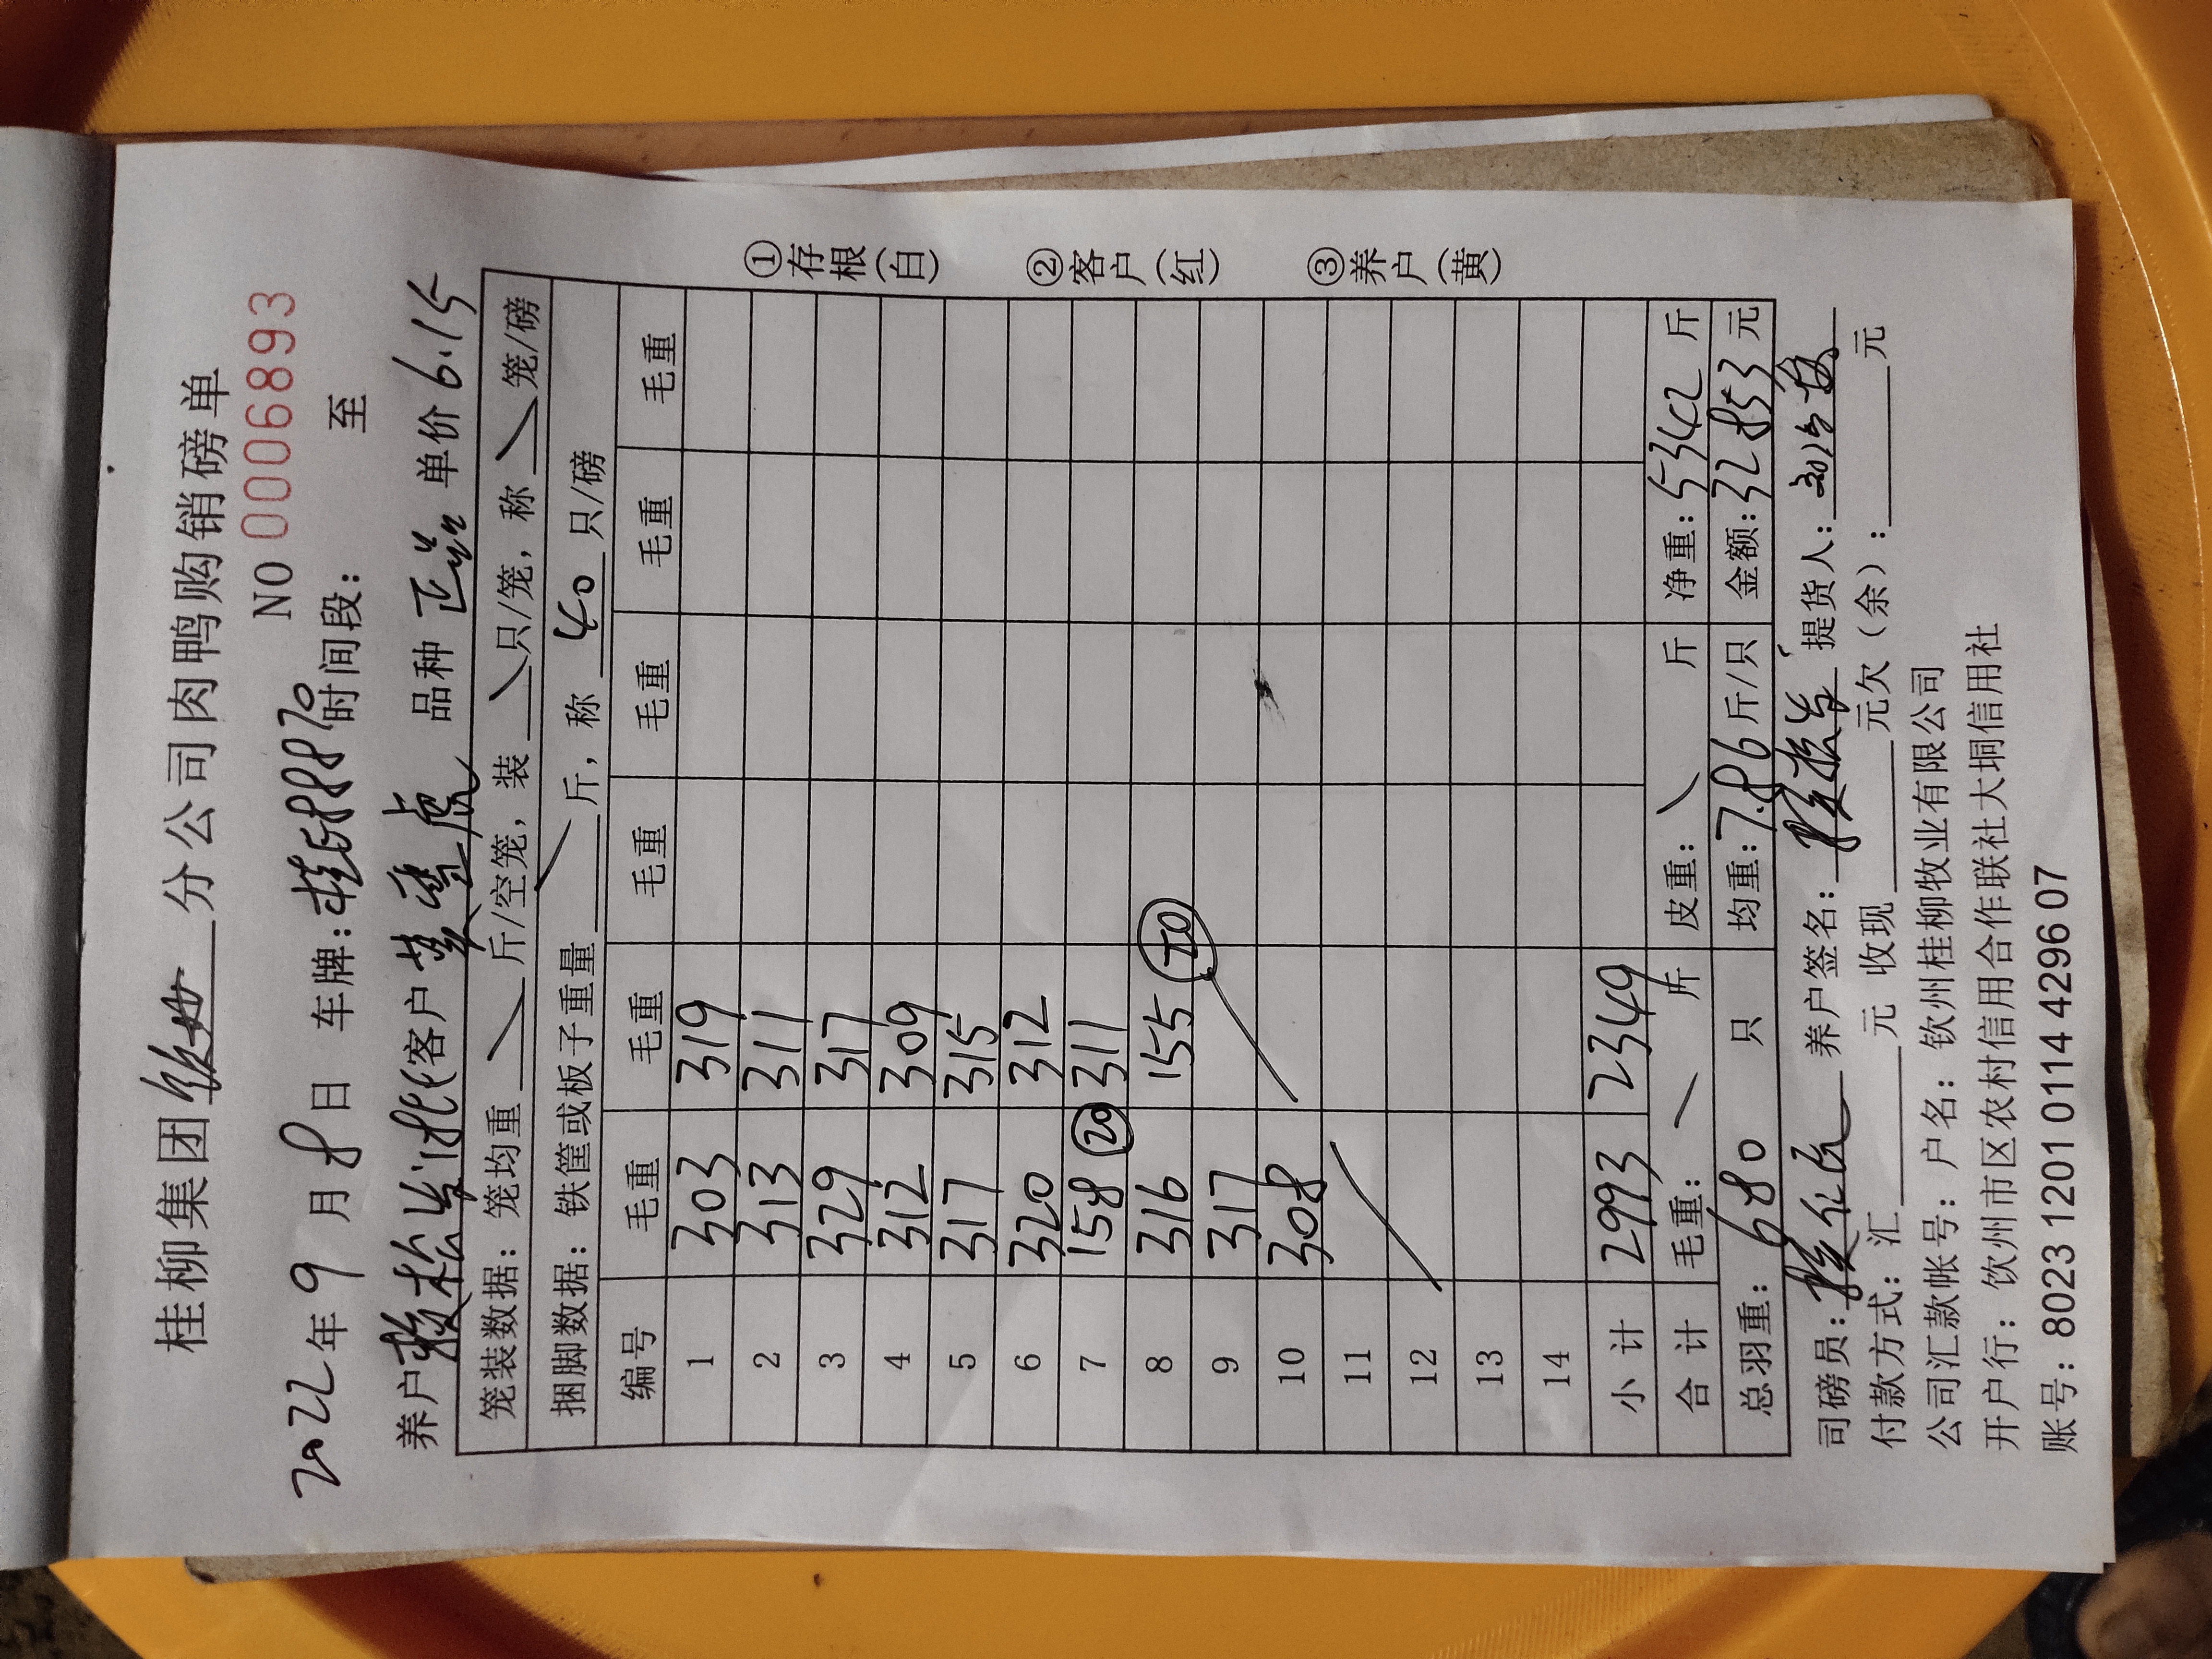 桂柳集团 分公司肉鸭购销磅单
NO 0006893
2022年9月8日 车牌: 时间段: 至
养户 客户 品种 单价6.15
笼装数据:笼均重 斤/空笼,装 只/笼,称 笼/磅
捆脚数据:铁筐或板子重量 斤,称 40 只/磅
编号 毛重 毛重 毛重 毛重 毛重 毛重
1 303 319
2 313 311
3 329 317
4 312 309
5 317 315
6 320 312
7 158 20 311
8 316 155
9 317
10 308
11
12
13
14
小计 2993 2349
合计 毛重: 斤 皮重: 斤 净重:5342斤
总羽重:680只 均重:7.86斤/只 金额:32853元
司磅员: 养户签名: 提货人:
付款方式:汇 元 收现 元欠(余): 元
公司汇款帐号:户名:钦州桂柳牧业有限公司
开户行:钦州市区农村信用合作联社大垌信用社
账号:8023 1201 0114 4296 07
①存根(白)
②客户(红)
③养户(黄)